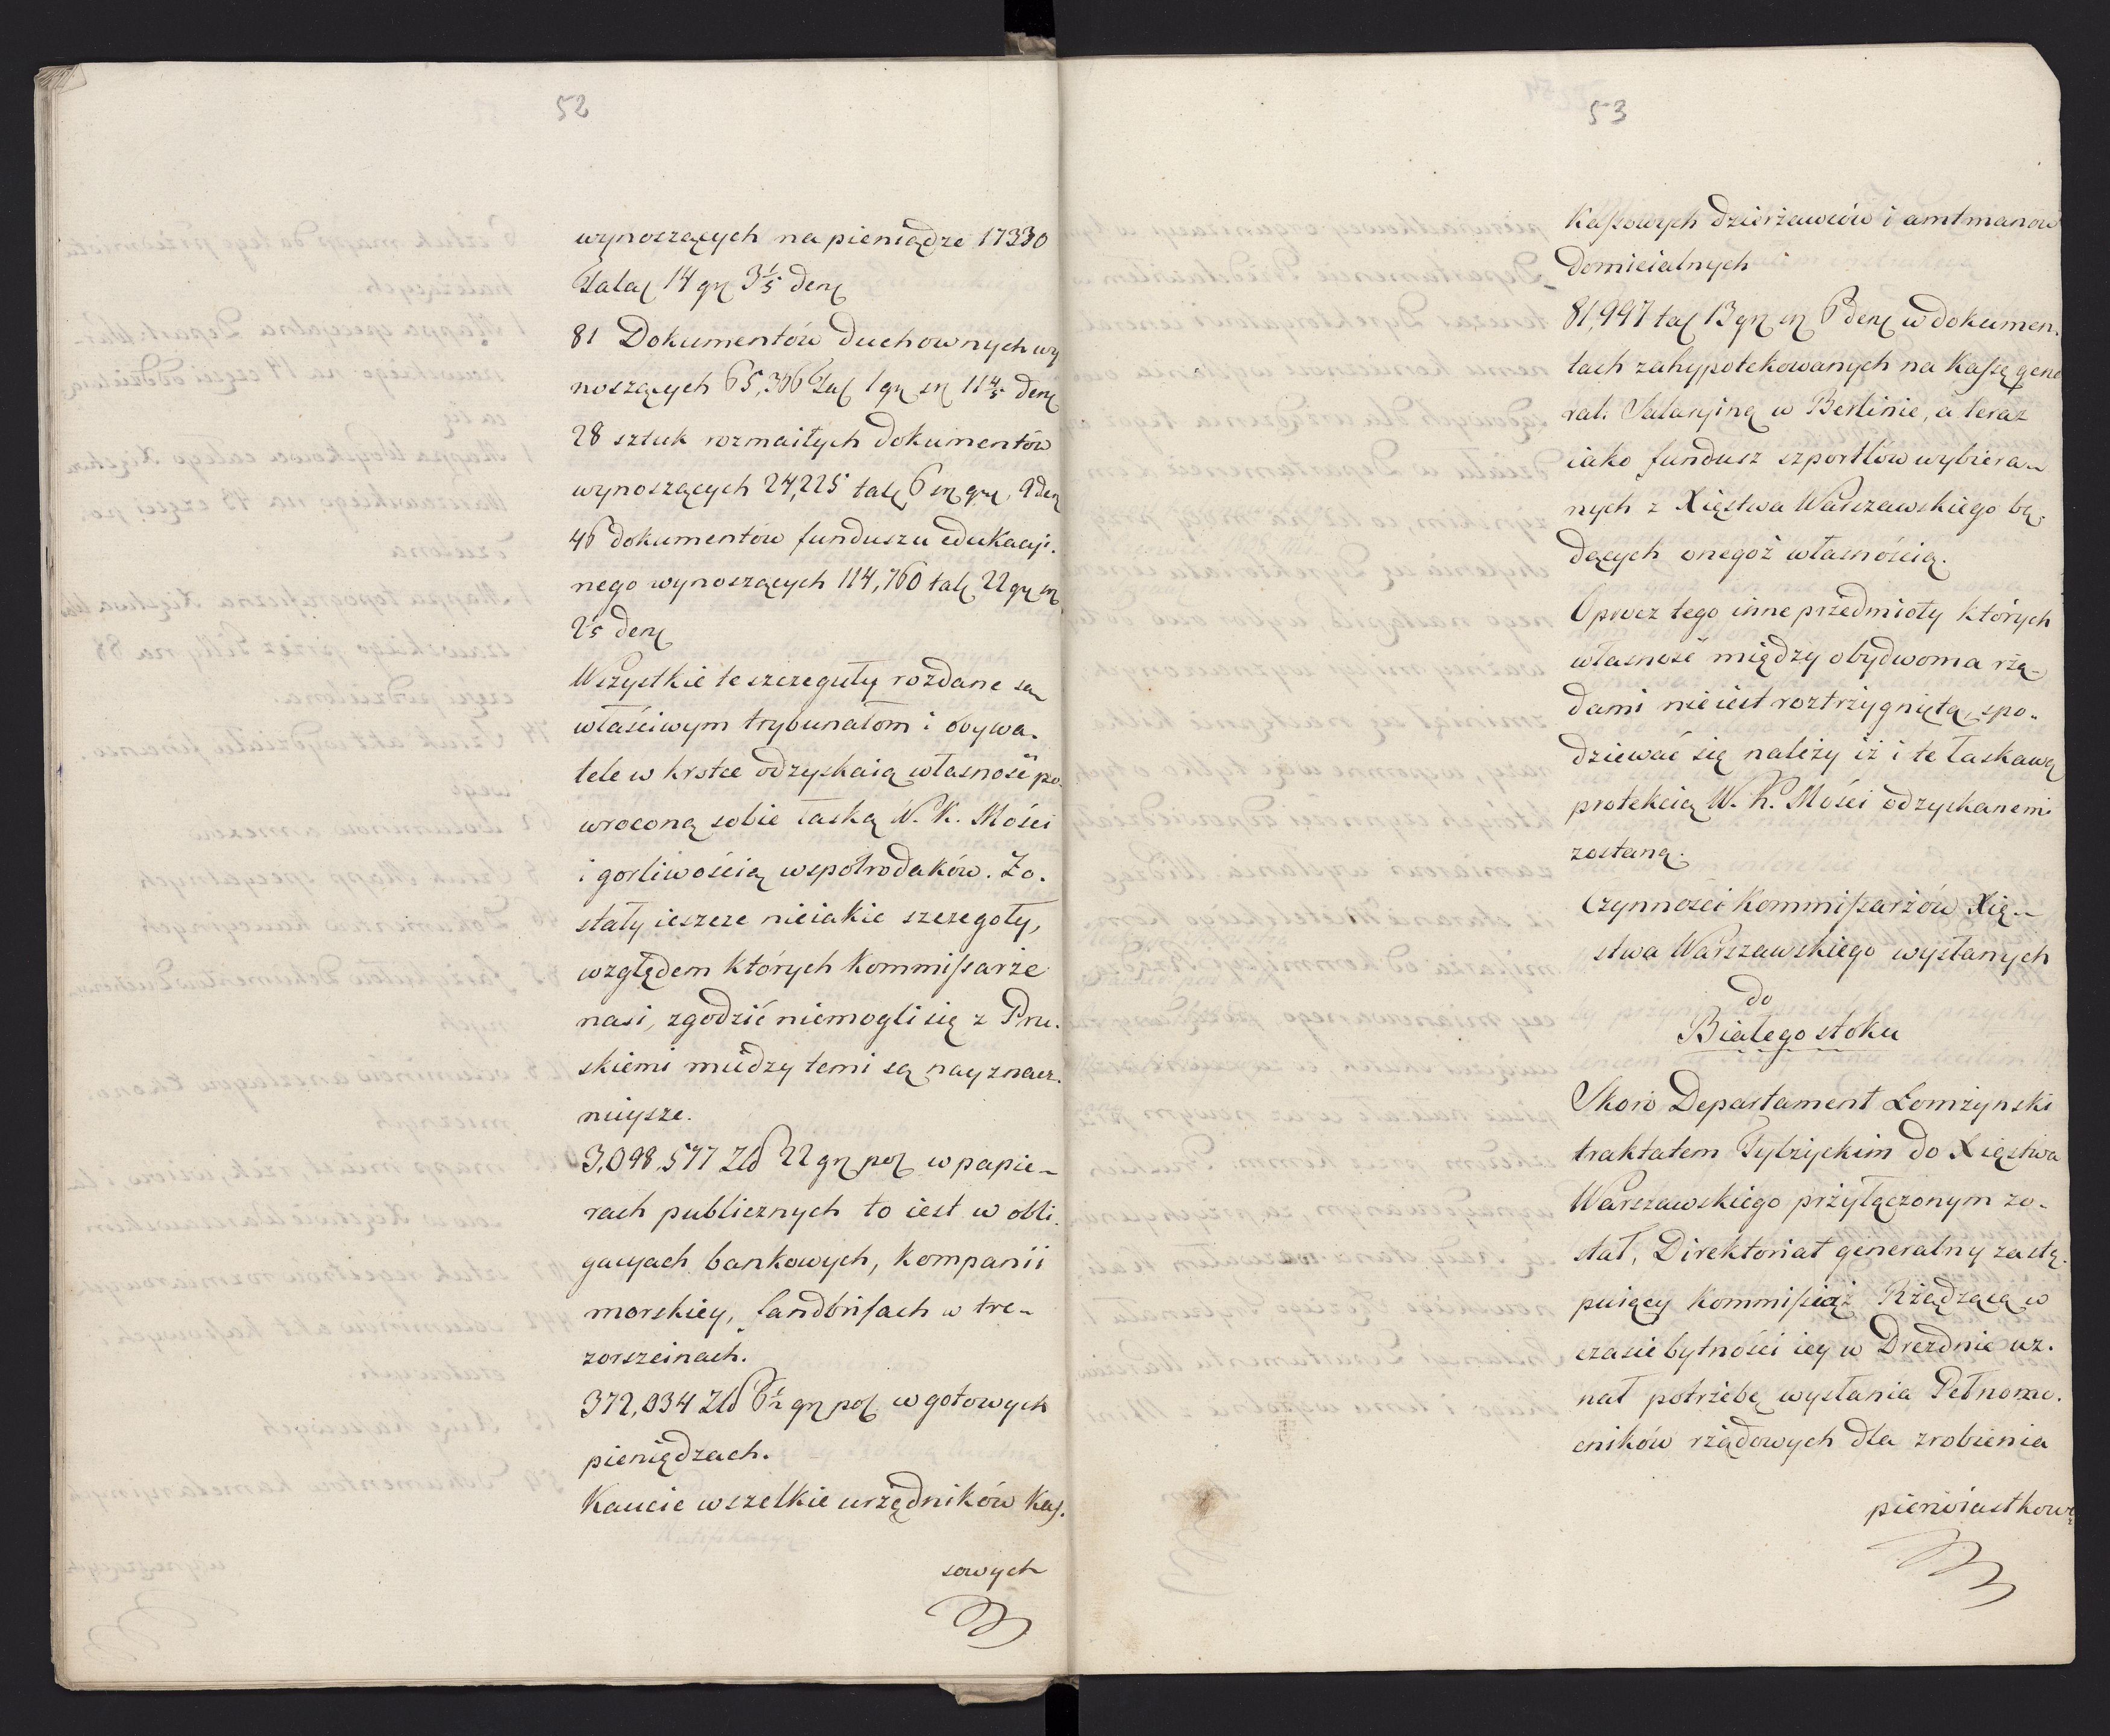 52
wynoszących na pieniądze 17330
Talar 14 gr 3 1/5 den
81 Dokumentów duchownych wy
noszących 65,306 Tal 1 gr sr 11 4/5 den
28 sztuk rozmaitych dokumentów
wynoszących 24,225 tal 6 sr gr, 9 den
46 dokumentów funduszu edukacyi.
nego wynoszących 114,760 tal 22 gr sr
2/5 den
Wszystkie te szczeguły rozdane są
właściwym trybunałom i obywa.
tele w krotce odzyskaią własność po.
wroconą sobie łaską W. K. Mości
i gorliwością współrodaków. Zo.
stały ieszcze nieiakie szczegoły,
względem których Kommissarze
nasi, zgodzić niemogli się z Pru.
skiemi miedzy temi są nayznacz.
nieysze.
3,098,577 Zł 22 gr pol w papie-
rach publicznych to iest w obli.
gacyach bankowych, Kompanii
morskiey, landbrifach w tre-
zorszeinach.
372,034 Zł 6 1/2 gr pol w gotowych
pieniędzach.
Kaucie wszelkie urzędników Kas.
sowych
53
Kassowych dzierżawców i amtmanow
domicialnych
81,997 tal 13 gr sr 6 den w dokumen.
tach zahypotekowanych na Kassę gene
ral. Salaryiną w Berlinie, a teraz
iako fundusz szportlów wybiera-
nych z Xięstwa Warszawskiego bę.
dących onegoż własnością.
Oprocz tego inne przedmioty których
własność między obydwoma rzą-
dami nie iest roztrzygniętą, spo-
dziewać się należy iż i te łaskawą
protekcią W. K. Mości odzyskanemi
zostaną.
Czynności Kommissarzów Xię-
stwa Warszawskiego wysłanych
do
Białego stoku
Skoro Departament Łomżynski
traktatem Tylżyckim do Xięstwa
Warszawskiego przyłączonym zo-
stał, Direktoriat generalny zastę.
puiący Kommissią Rządzącą w
czasie bytności iey w Dreznie uz.
nał potrzebę wysłania Pełnomo.
cników rządowych dla zrobienia
pierwiastkowe